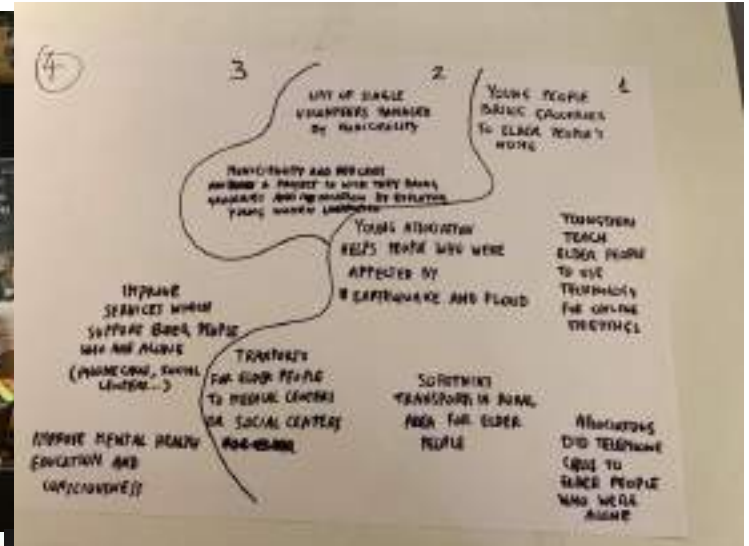 4
3
2
1
LIST OF SINGLE
VOLUNTEERS MANAGED
BY MUNICIPALITY
YOUNG PEOPLE
BRING GROCERIES
TO ELDER PEOPLE'S
HOME
MUNICIPALITY AND
A PROJECT IN WICH THEY BRING
YOUNG
YOUNG ASSOCIATION
HELPS PEOPLE WHO WERE
AFFECTED BY
EARTHQUAKE AND FLOOD
YOUNGSTERS
TEACH
ELDER PEOPLE
TO USE
TECHNOLOGY
FOR ONLINE
MEETINGS
IMPROVE
SERVICES WHICH
SUPPORT ELDER PEOPLE
WHO ARE ALONE
SOCIAL
TRANSPORTS
FOR ELDER PEOPLE
TO MEDICAL CENTERS
OR SOCIAL CENTERS
TRANSPORT IN RURAL
AREA FOR ELDER
PEOPLE
IMPROVE MENTAL HEALTH
EDUCATION AND
CONSCIOUSNESS
DID TELEPHONE
CALLS TO
ELDER PEOPLE
WHO WERE
ALONE